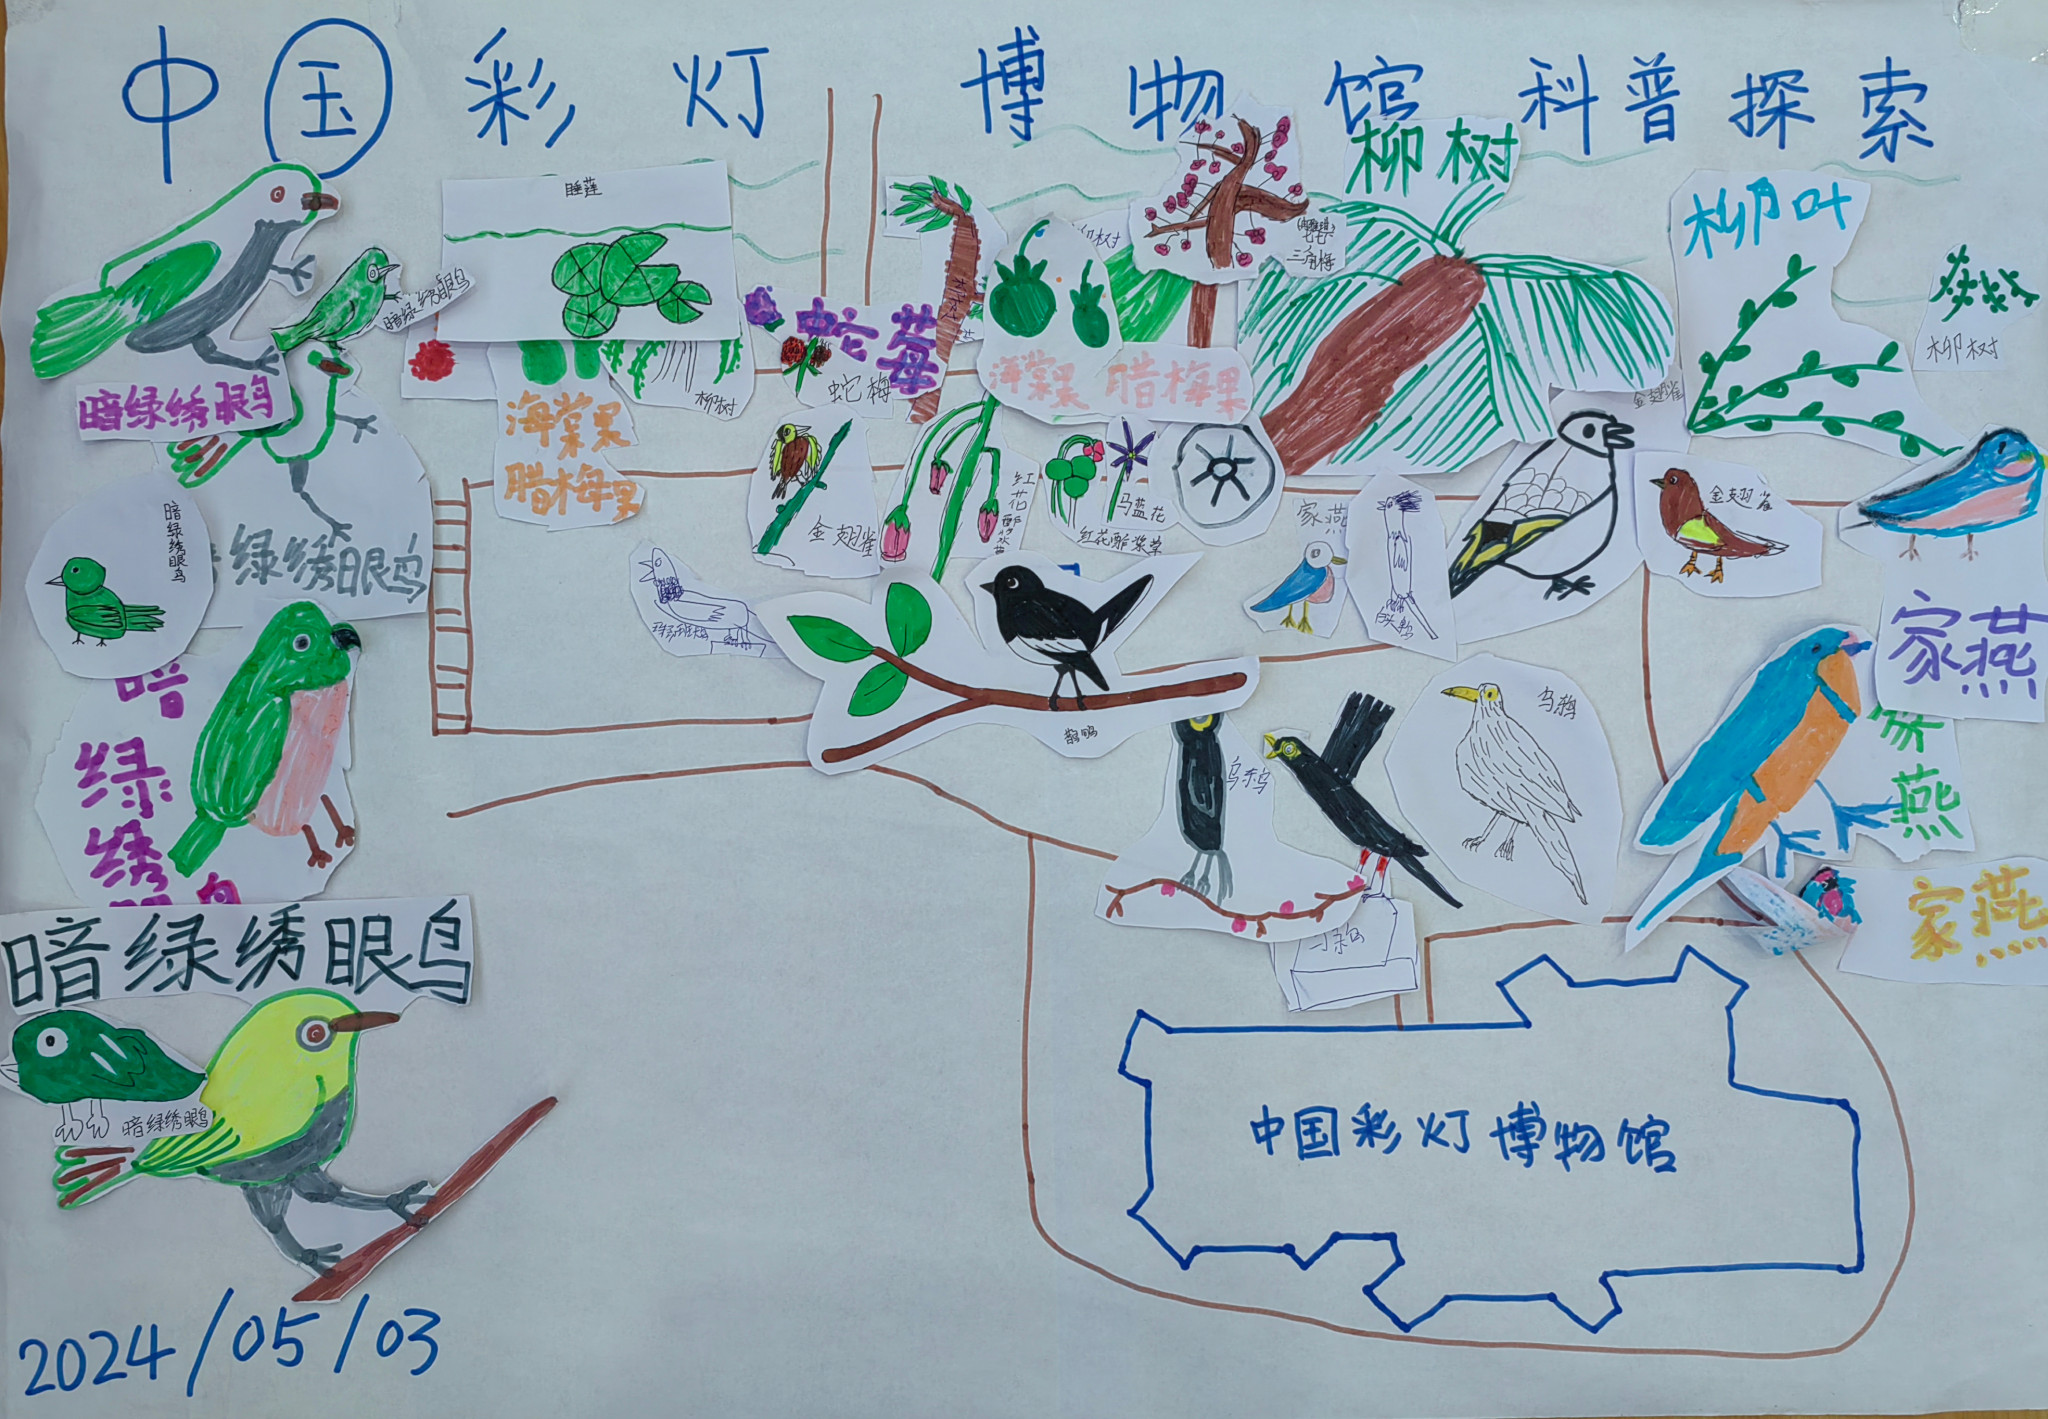 中国彩灯博物馆科普探索
睡莲
柳树
柳叶
柳树
三角梅
柳树
暗绿绣眼鸟
暗绿绣眼鸟
蛇莓
蛇梅
海棠果 腊梅果
海棠果
腊梅果
柳树
金翅雀
金翅雀
金翅雀
红花酢浆草
马蓝花
红花酢浆草
家燕
暗绿绣眼鸟
绿绣眼鸟
珠颈斑鸠
家燕
家燕
鹊鸲
乌鸦
乌鸦
乌鸦
暗绿绣眼鸟
家燕
暗绿绣眼鸟
暗绿绣眼鸟
中国彩灯博物馆
2024/05/03